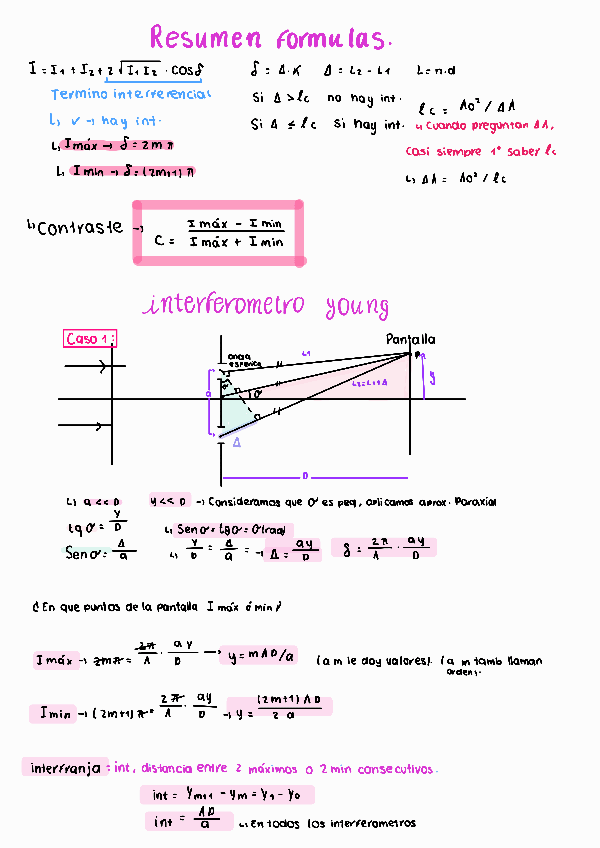 Resumen formulas.
I = I1 + I2 + 2 √I1 I2 · cosδ
δ = Δ·K Δ = L2 - L1 L = n·d
Termino interferencial
Si Δ > lc no hay int.
lc = λo² / Δλ
↳ ✓ → hay int.
Si Δ ≤ lc si hay int.
↳ Cuando preguntan Δλ,
casi siempre 1º saber lc
↳ Imáx → δ = 2mπ
↳ Imin → δ = (2m+1)π
↳ Δλ = λo² / lc
↳ Contraste → C = (Imáx - Imin) / (Imáx + Imin)
interferometro young
Caso 1:
Pantalla
onda
esferica
L1
L2=L1+Δ
P
y
a
σ
σ
Δ
D
↳ a << D y << D → Consideramos que σ es peq, aplicamos aprox. Paraxial
tgσ = y/D ↳ Senσ = tgσ = σ(rad)
Senσ = Δ/a ↳ y/D = Δ/a = → Δ = ay/D δ = 2π/λ · ay/D
¿En que puntos de la pantalla Imáx ó min?
Imáx → 2mπ = 2π/λ · ay/D → y = mλD/a (a m le doy valores). (a m tamb llaman
orden).
Imin → (2m+1)π = 2π/λ · ay/D → y = (2m+1)λD / 2a
interfranja : int, distancia entre 2 máximos o 2 min consecutivos.
int = ym+1 - ym = y1 - y0
int = λD/a ↳ En todos los interferometros